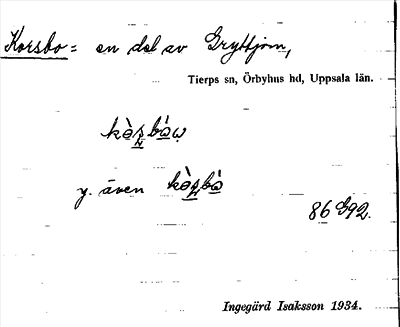 Korsbo = en del av Gryttjom,
Tierps sn, Örbyhus hd, Uppsala län.
y. även
86 G92.
Ingegärd Isaksson 1934.